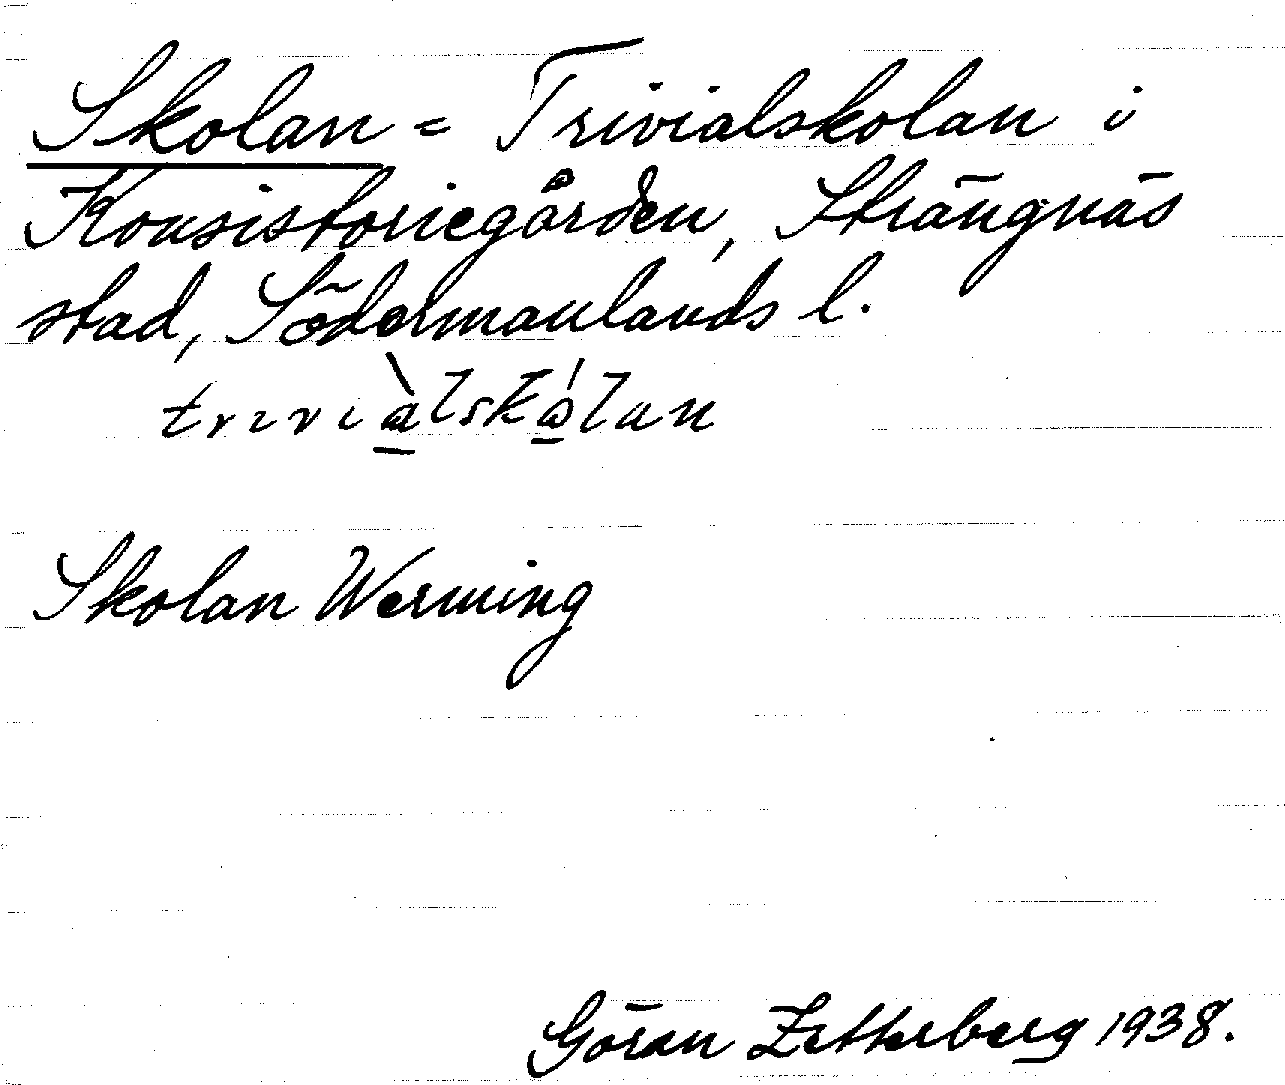 Skolan = Trivialskolan i
Konsistoriegården, Strängnäs
stad, Södermanlands l.
Skolan Werming
Göran Zetterberg 1938.